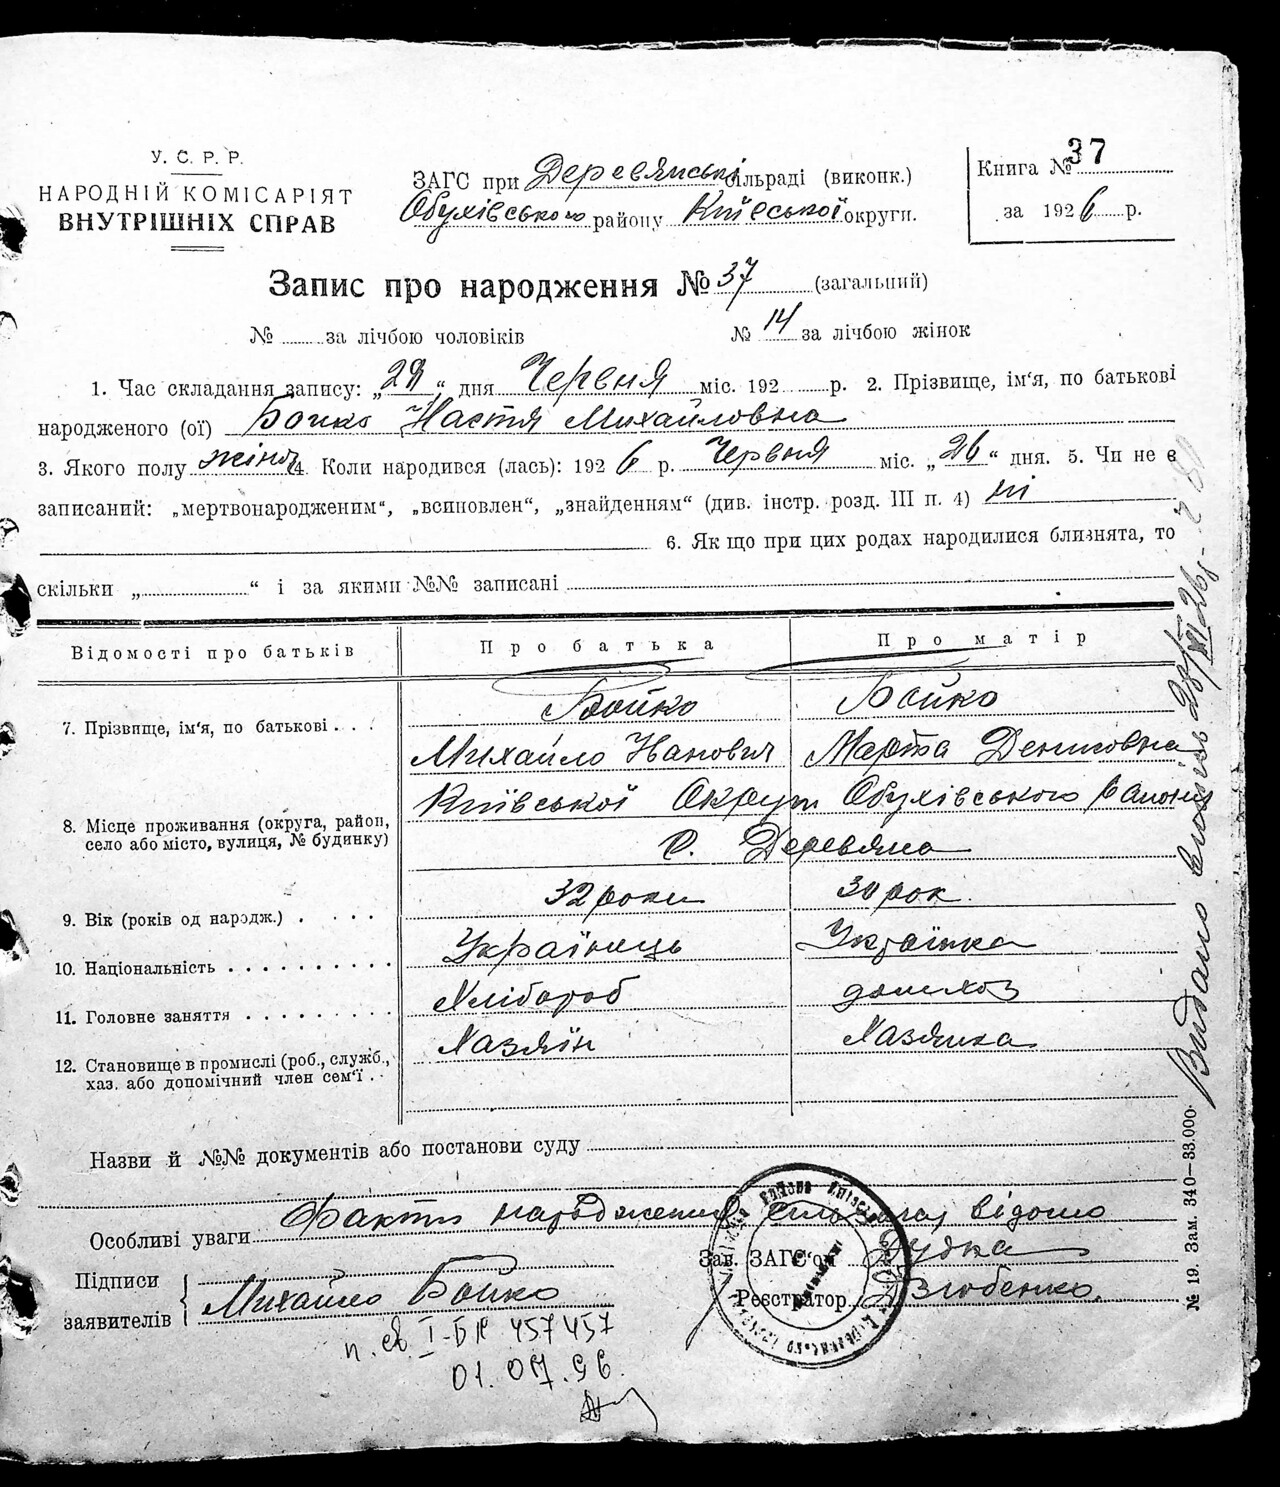 У. С. Р. Р.
НАРОДНІЙ КОМІСАРІЯТ
ВНУТРІШНІХ СПРАВ
ЗАГС при Деревянській сільраді (виконк.)
Обухівського району Київської округи.
Книга № 37
за 1926 р.
Запис про народження № 37 (загальний)
№ за лічбою чоловіків № 14 за лічбою жінок
1. Час складання запису: „29“ дня Червня міс. 192 р. 2. Прізвище, ім'я, по батькові
народженого (ої) Бойко Настя Михайловна
3. Якого полу жіноч 4. Коли народився (лась): 1926 р. Червня міс. „26“ дня. 5. Чи не є
записаний: „мертвонародженим“, „всиновлен“, „знайденням“ (див. інстр. розд. III п. 4) ні
6. Якщо при цих родах народилися близнята, то
скільки „ “ і за якими №№ записані
Відомості про батьків Про батька Про матір
7. Прізвище, ім'я, по батькові . . . Бойко Бойко
Михайло Іванович Марта Денисовна
8. Місце проживання (округа, район, село або місто, вулиця, № будинку) Київської Округи Обухівського району
с. Деревяна
9. Вік (років од народж.) . . . . 32 роки 30 рок.
10. Національність . . . . . . . . . . Українець Українка
11. Головне заняття . . . . . . . . . Хлібороб домихоз
12. Становище в промислі (роб., служб., хаз. або допомічний член сем'ї . . Хазяїн Хазяйка
Назви й №№ документів або постанови суду
Особливі уваги Факт народження відомо
Підписи заявителів Михайло Бойко
Зав. ЗАГС'ом Дудка
Реєстратор Дзюбенко.
п. св. I-БК 457457
01.07.96.
Видано
№ 19. Зам. 340—33.000.